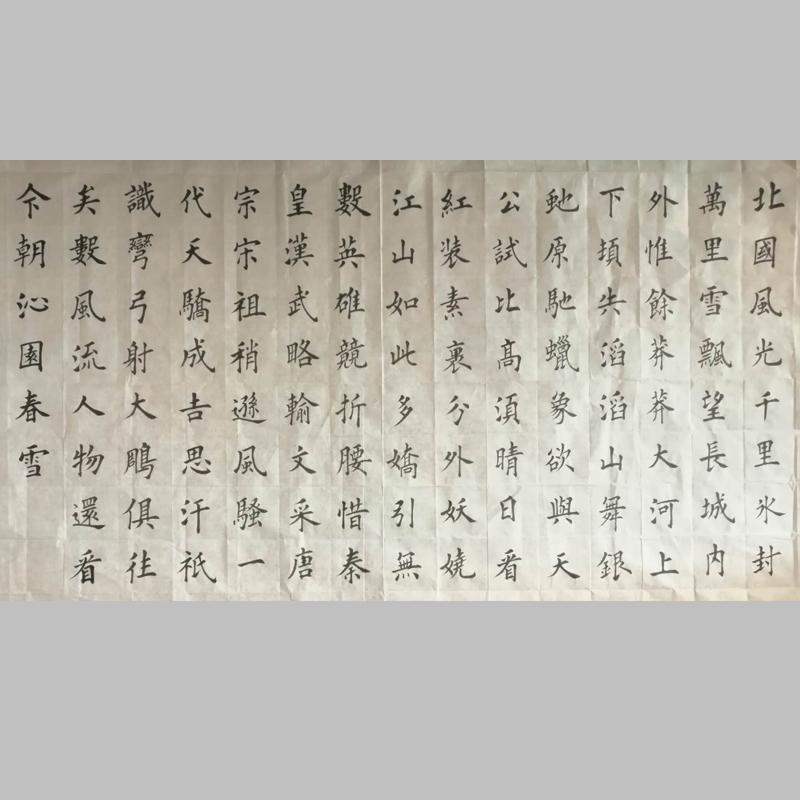 北國風光千里氷封
萬里雪飄望長城内
外惟餘莽莽大河上
下頓失滔滔山舞銀
虵原馳蠟象欲與天
公試比高須晴日看
紅装素裹分外妖嬈
江山如此多嬌引無
數英雄競折腰惜秦
皇漢武略輸文采唐
宗宋祖稍遜風騷一
代天驕成吉思汗祇
識彎弓射大鵰俱往
矣數風流人物還看
今朝沁園春雪